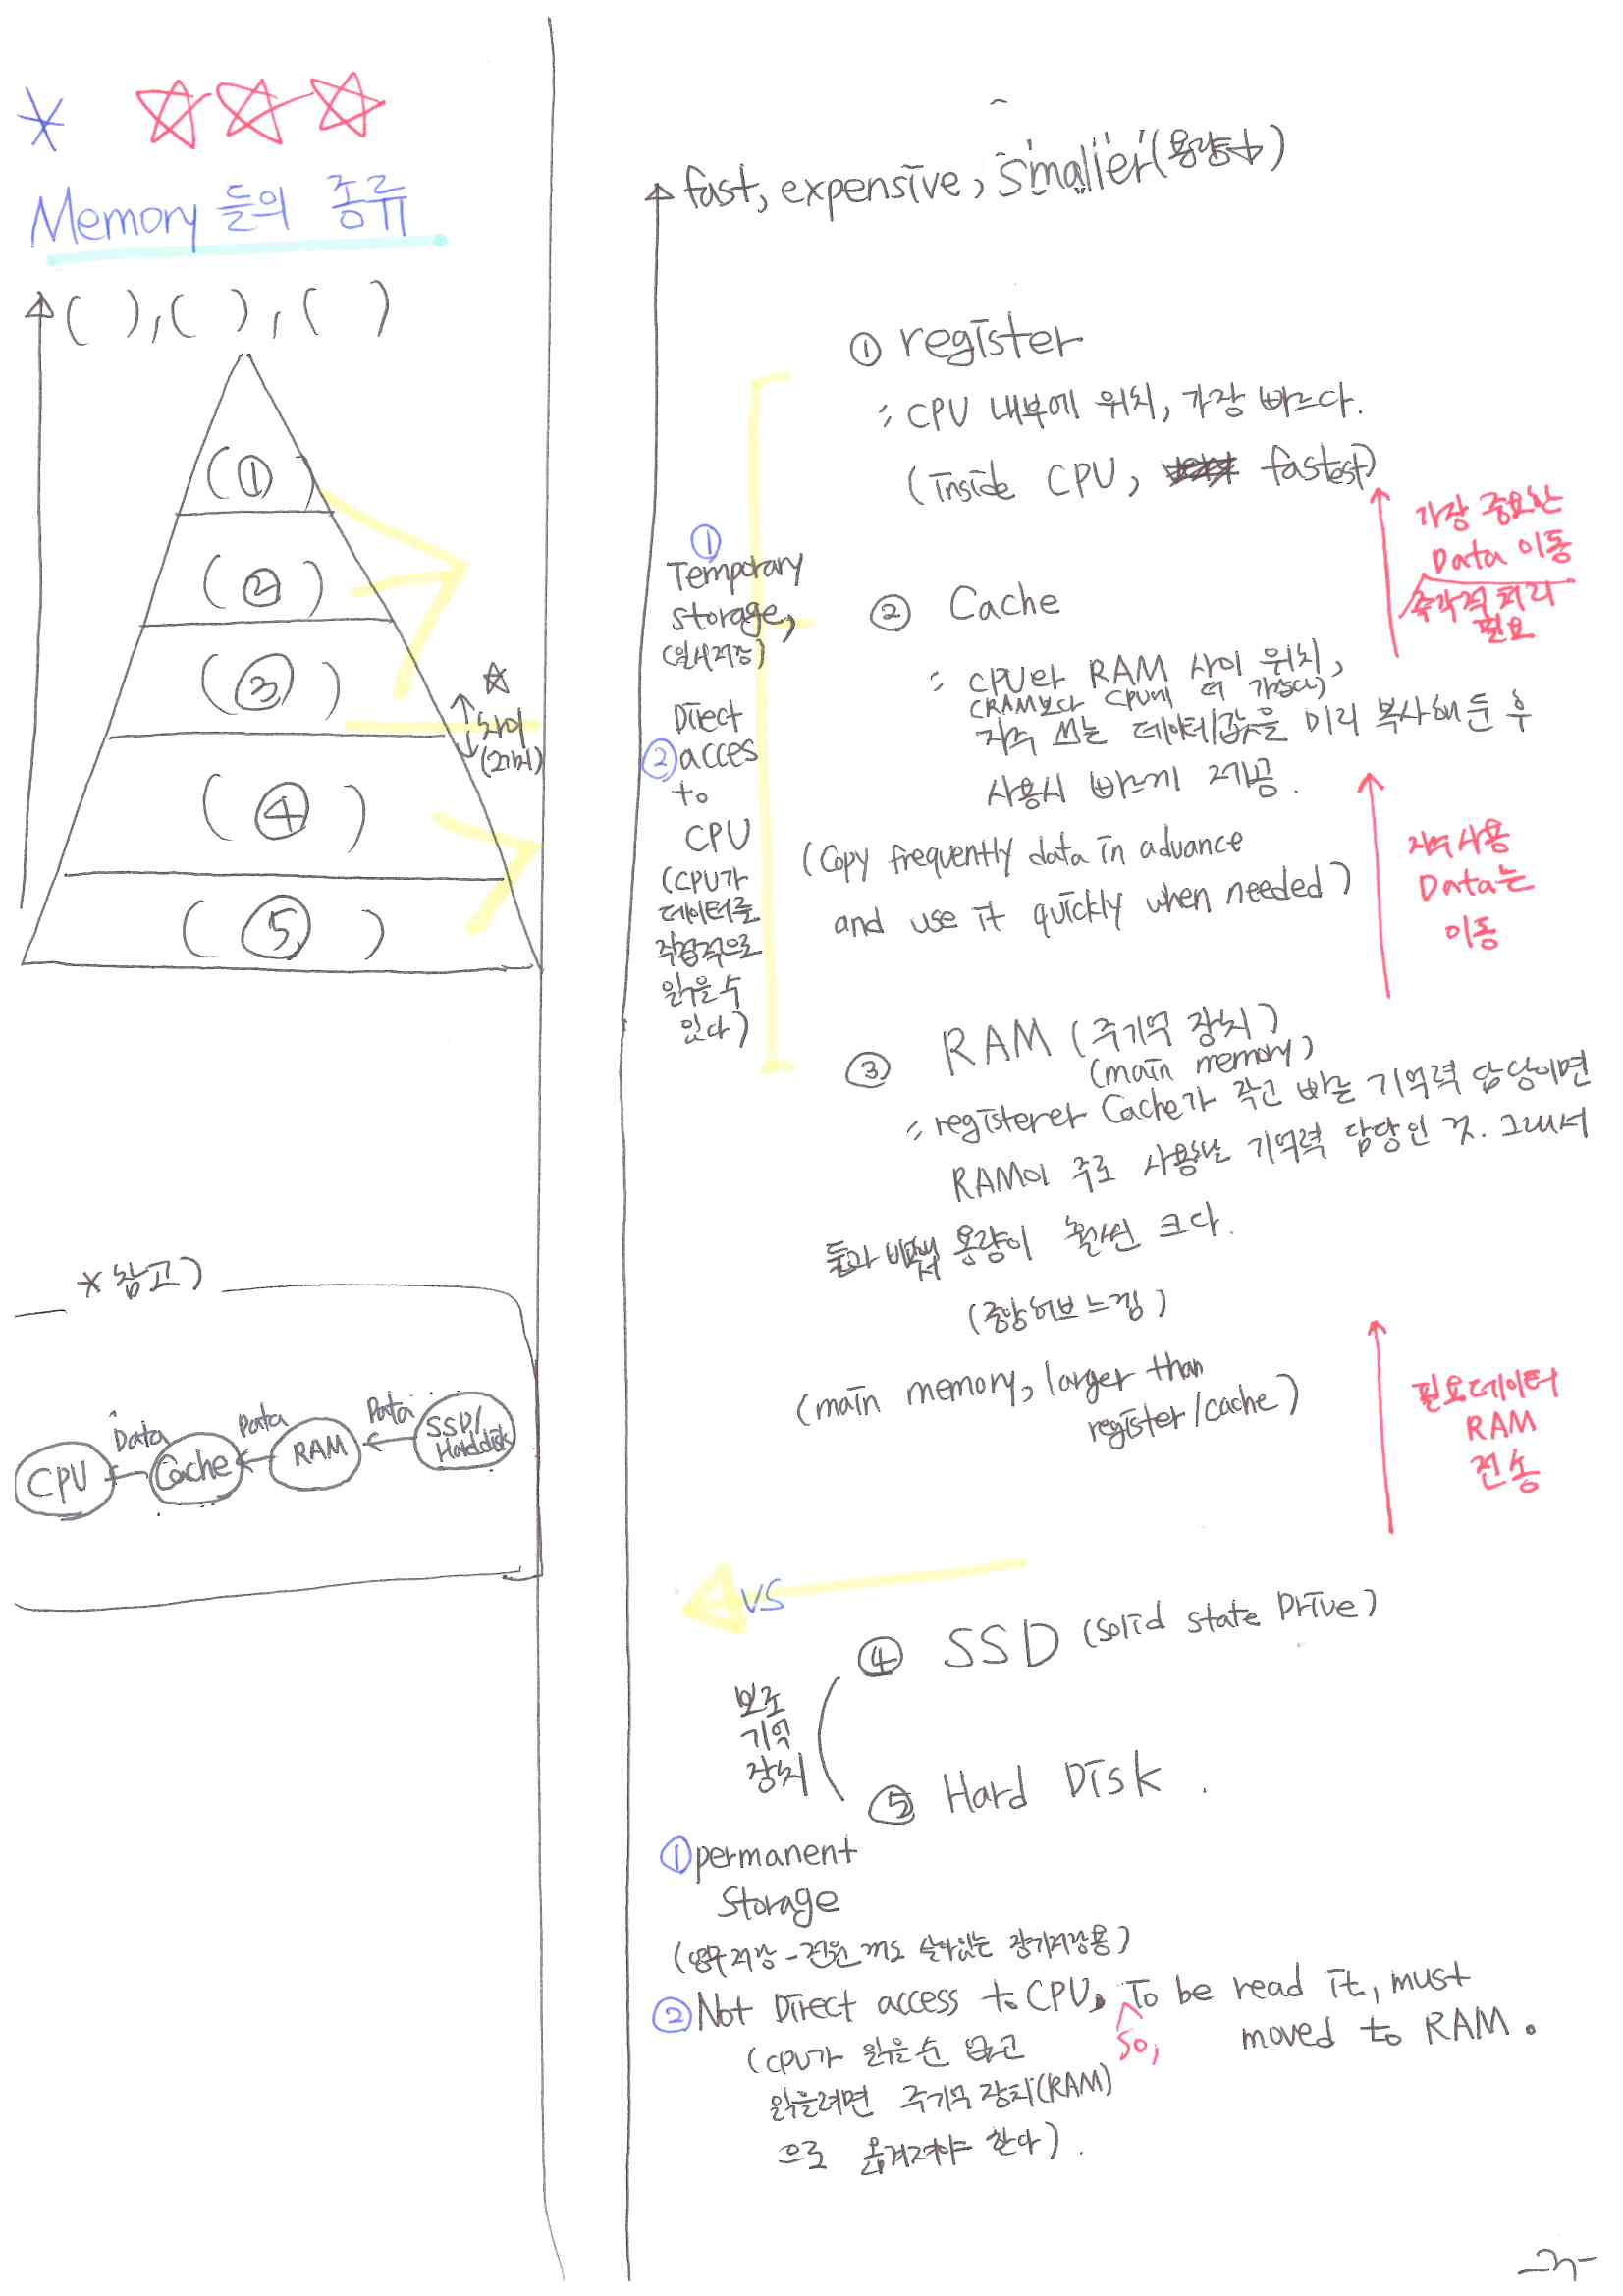 *
Memory 들의 종류
( ), ( ), ( )
( ① )
( ② )
( ③ )
( ④ )
( ⑤ )
차이
* 참고)
CPU
Data
Cache
Data
RAM
Data
SSD/
Harddisk
fast, expensive, smaller (용량↓)
① register
: CPU 내부에 위치, 가장 빠르다.
(inside CPU, fastest)
가장 중요한
Data 이동
즉각적 처리
필요
①
Temporary
storage,
(일시저장)
Direct
② acces
to
CPU
(CPU가
데이터를
직접적으로
읽을수
있다)
② Cache
: CPU와 RAM 사이 위치,
(RAM보다 CPU에 더 가깝다)
자주 쓰는 데이터값을 미리 복사해둔 후
사용시 빠르게 제공.
(Copy frequently data in advance
and use it quickly when needed)
자주사용
Data는
이동
③ RAM (주기억 장치)
(main memory)
: register와 Cache가 작고 빠른 기억력 담당이면
RAM이 주로 사용하는 기억력 담당인 것. 그래서
둘과 비교해서 용량이 훨씬 크다.
(중앙허브느낌)
(main memory, larger than
register/cache)
필요데이터
RAM
전송
VS
④ SSD (solid state Drive)
보조
기억
장치
⑤ Hard Disk.
① permanent
Storage
(영구저장 - 전원 꺼도 살아있는 장기저장용)
② Not Direct access to CPU, So, To be read it, must
moved to RAM.
(CPU가 읽을순 없고
읽을려면 주기억 장치(RAM)
으로 옮겨져야 한다).